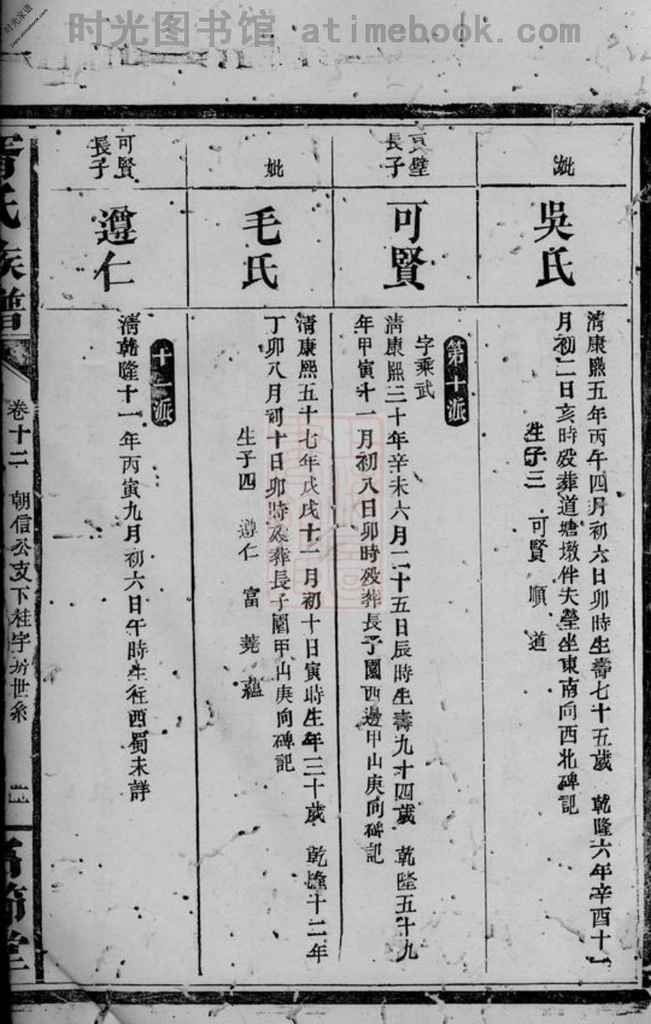 时光图书馆 atimebook.com
妣
吳氏
清康熙五年丙午四月初六日卯時生壽七十五歲 乾隆六年辛酉十一
月初二日亥時歿葬道塘墩伴夫塋坐東南向西北碑記
生子三 可賢 順 道
第十派
貢璧
長子
可賢
字乘武
清康熙三十年辛未六月二十五日辰時生壽九十四歲 乾隆五十九
年甲寅十一月初八日卯時歿葬長子園西邊甲山庚向碑記
妣
毛氏
清康熙五十七年戊戌十一月初十日寅時生年三十歲 乾隆十二年
丁卯八月初十日卯時歿葬長子園甲山庚向碑記
生子四 遵仁 富 蕘 蘊
十一派
可賢
長子
遵仁
清乾隆十一年丙寅九月初六日午時生往西蜀未詳
氏族譜
卷十二 朝信公支下桂字房世系
堂